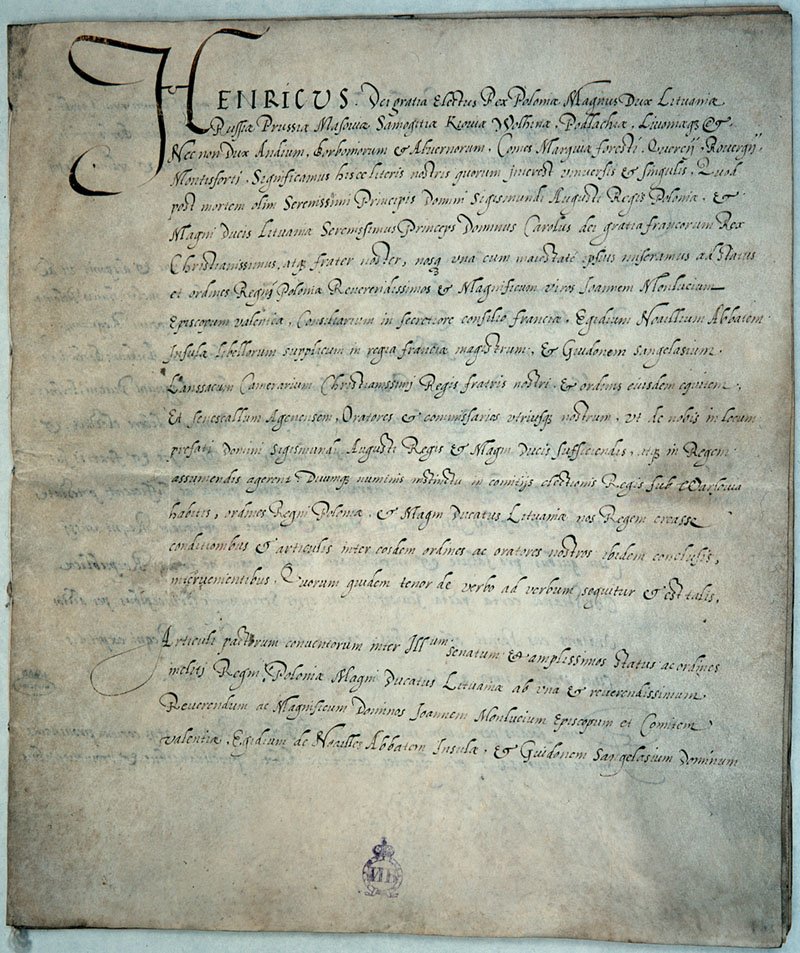 HENRICUS. Dei gratia Electus Rex Poloniæ Magnus Dux Lituaniæ
Russiæ Prussiæ Masoviæ Samogitiæ Kioviæ Wolhinæ, Podlachiæ, Livoniæq3 &
Nec non Dux Andium, Borboniorum & Alvernorum, Comes Marquiæ foresti, Quercij, Rovergij
Montisforti, Significamus hisce literis nostris quorum interest universis & singulis, Quod
post mortem olim Serenissimi Principis Domini Sigismundi Augusti Regis Poloniæ, &
Magni Ducis Lituaniæ Serenissimus Princeps Dominus Carolus dei gratia francorum Rex
Christianissimus, atq3 frater noster, nosq3 una cum maiestate ipsius miseramus ad status
et ordines Regni Poloniæ Reverendissimos & Magnificum viros Ioannem Monlucium
Episcopum valentiæ, Consiliarium in secretiore consilio franciæ, Egidium Noaillium Abbatem
Insulæ libellorum supplicum in regia franciæ magistrum, & Guidonem Sangelasium
Lanssacum Camerarium Christianissimi Regis fratris nostri & ordinis eiusdem equitem,
Et Senescallum Agenensem, Oratores & commissarios utriusq3 nostrum, ut de nobis in locum
prefati Domini Sigismundi Augusti Regis & Magni Ducis sufficiendis, atq3 in Regem
assumendis agerent: Duumq3 numinis instinctu in comitijs electionis Regis sub Warsovia
habitis, ordines Regni Poloniæ, & Magni Ducatus Lituaniæ nos Regem creasse
conditionibus & articulis inter eosdem ordines ac oratores nostros ibidem conclusis,
intervenientibus. Quorum quidem tenor de verbo ad verbum sequitur & est talis.
Articuli pactorum conventorum inter Illum senatum & amplissimos status ac ordines
inclitj Regni Poloniæ Magni Ducatus Lituaniæ ab una & reverendissimum
Reverendum ac Magnificum Dominos Ioannem Monlucium Episcopum et Comitem
valentiæ, Egidium de Noailles Abbatem Insulæ, & Guidonem Sangelasium Dominum